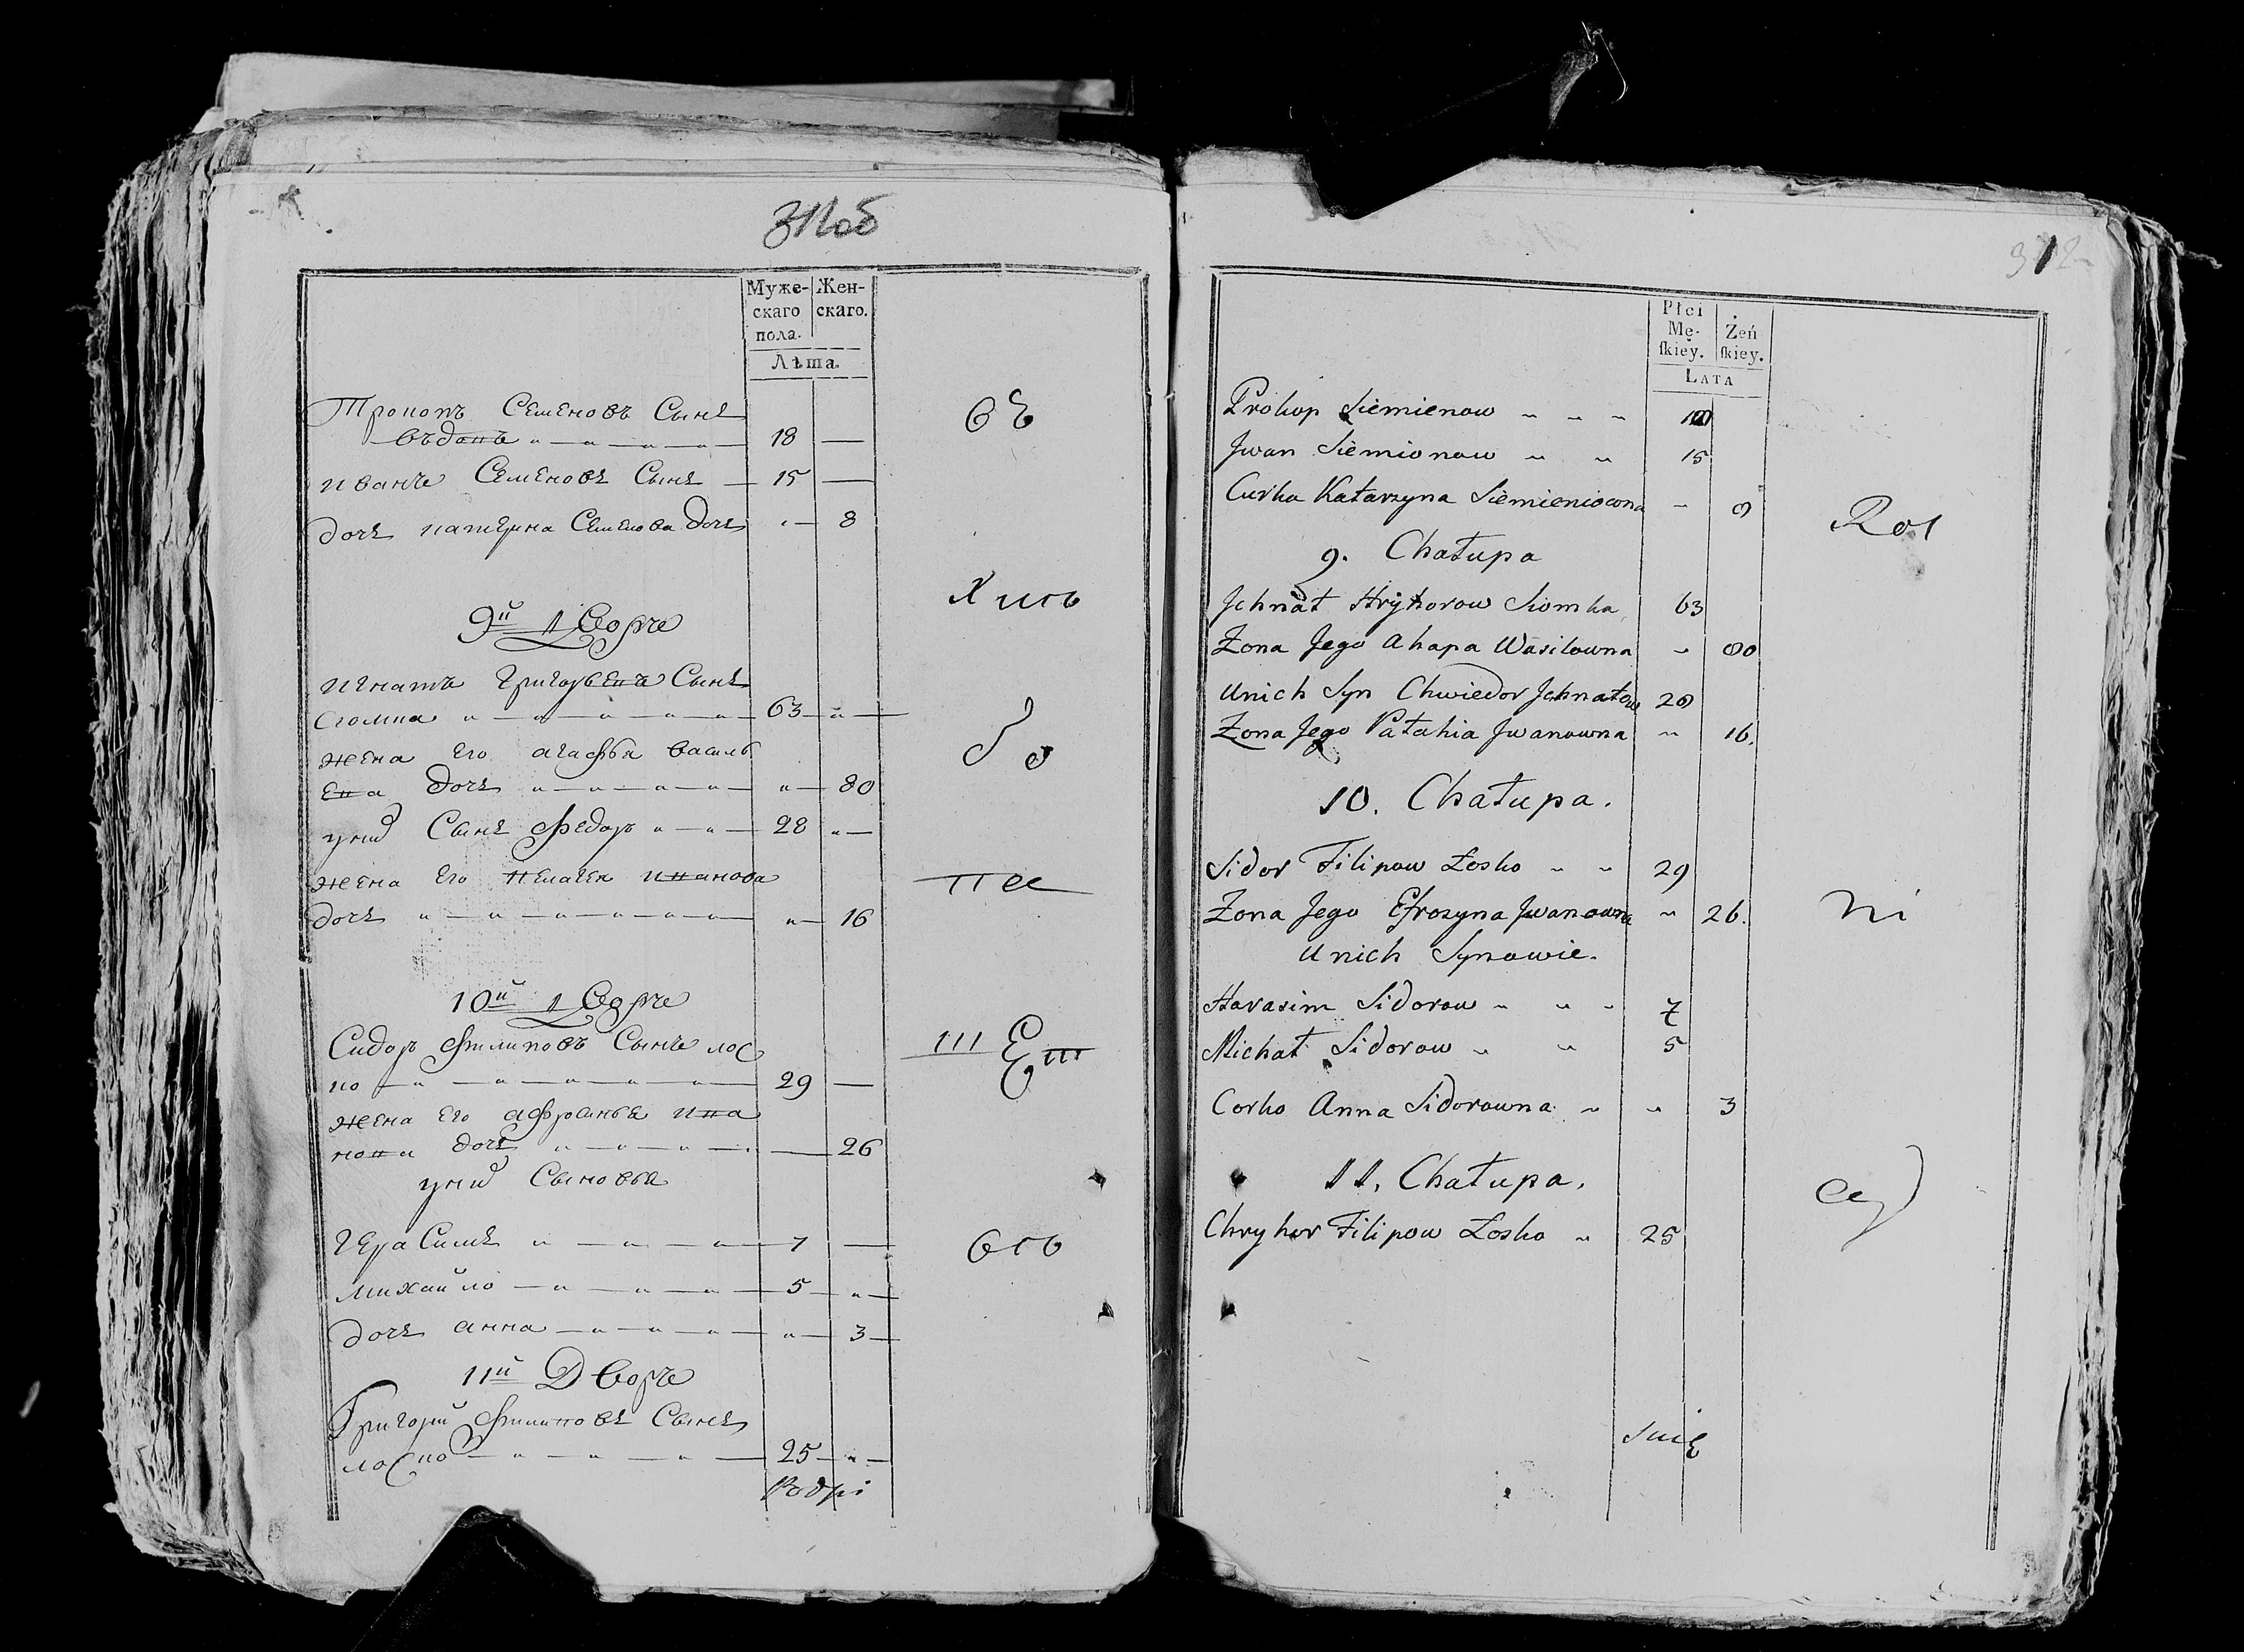 311об
Муже- Жен-
скаго скаго.
пола.
Лѣта.
Прокопъ Семеновъ Сынъ
18 —
Иванъ Семеновъ Сынъ — 15 —
дочь катерина Семенова дочь " — 8
9й Дворъ
Игнатъ Григорьевъ Сынъ
Сіомка " — " — " — " — " — 63 — " —
жена его агафья василь
ева дочь " — " — " — " — " — 80
у них Сынъ Федоръ " — " — 28 " —
жена его пелагея иванова
дочь " — " — " — " — " — " — 16
10й Дворъ
Сидоръ Филиповъ Сынъ лос
ко — " — " — " — " — " — 29 —
жена его афросинья ива
нова дочь " — " — " — " — 26
у них Сыновья
Герасимъ " — " — " — " — 7 —
михайло — " — " — " — 5 — " —
дочь анна — " — " — " — " — 3 —
11й Дворъ
Григорий Филиповъ Сынъ
лоско — " — " — " — " — 25 — " —
въ
Хись
до
пе
Ось
312
Płci
Mę- Żeń
skiey. skiey.
LATA
Prokop Siemienow " " "
Jwan Siemionow " " 15
Curka Katarzyna Siemieniowna " 8
9. Chałupa
Jchnat Hryhorow Siomka 63
Żona Jego Ahapa Wasilowna " 80
Unich Syn Chwiedor Jchnatow 28
Żona Jego Pałahia Jwanowna " 16.
10. Chałupa.
Sidor Filipow Łosko " " 29
Żona Jego Efrozyna Jwanowna " 26.
Unich Synowie.
Harasim Sidorow " " " 7
Michał Sidorow " " 5
Corko Anna Sidorowna " " 3
11. Chałupa.
Chryhor Filipow Łosko " 25
Ros
ni